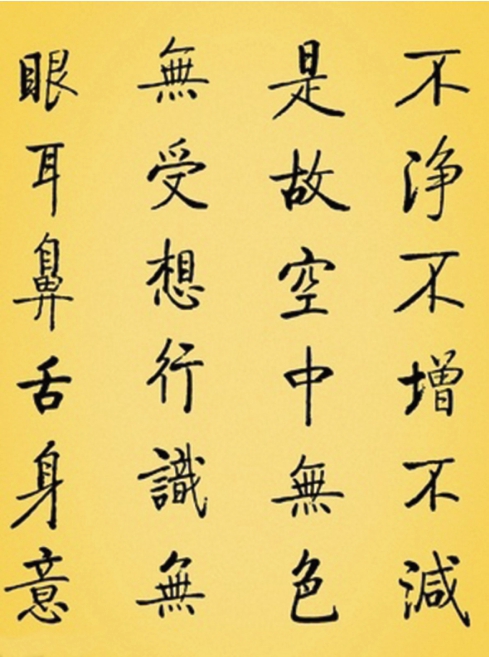 不淨不增不減
是故空中無色
無受想行識無
眼耳鼻舌身意